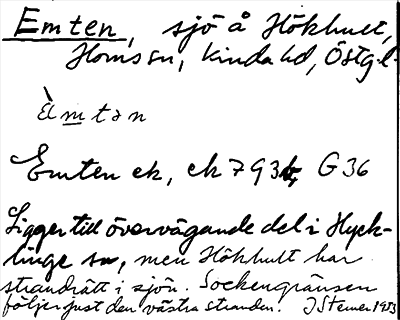 Emten, sjö å Hökhult,
Horns sn, Kinda hd, Östg.l.
È̀mtən
Emten ek, ek 793b, G36
Ligger till övervägande del i Hyck-
linge sn, men Hökhult har
strandrätt i sjön. Sockengränsen
följer just den västra stranden. J Stemer 1933